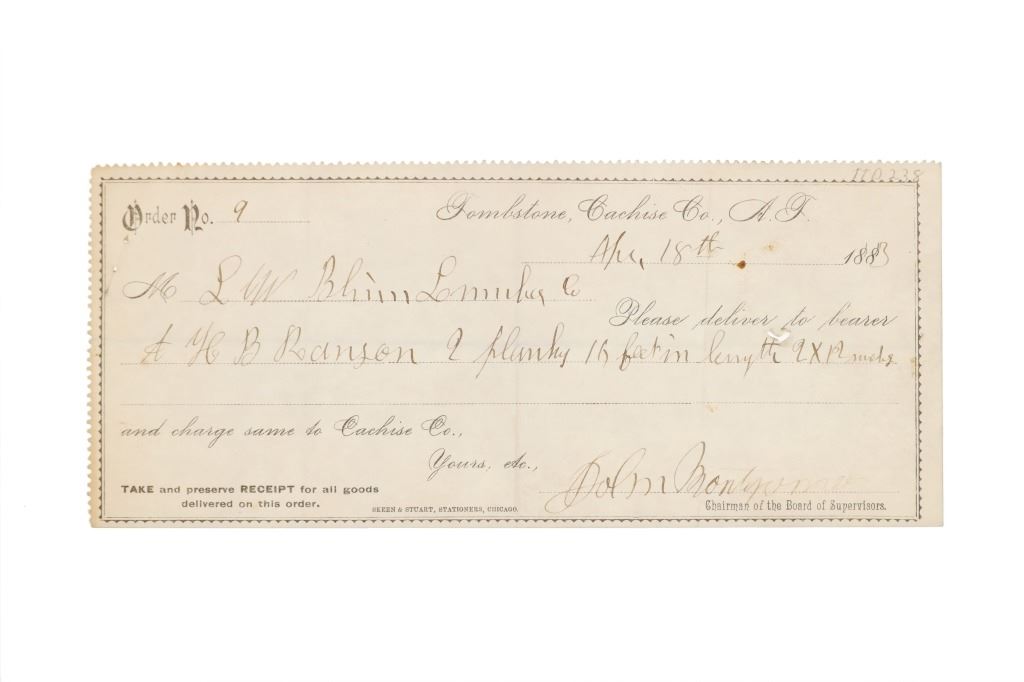 110.238
Order No. 9
Tombstone, Cachise Co., A. T.
Apr. 18th 1883
M L W Blinn Lumber Co
Please deliver to bearer
H B Ranson 2 planks 16 feet in length 2 X 12 inches
and charge same to Cachise Co.,
Yours, etc.,
TAKE and preserve RECEIPT for all goods
delivered on this order.
SKEEN & STUART, STATIONERS, CHICAGO.
John Montgomery
Chairman of the Board of Supervisors.